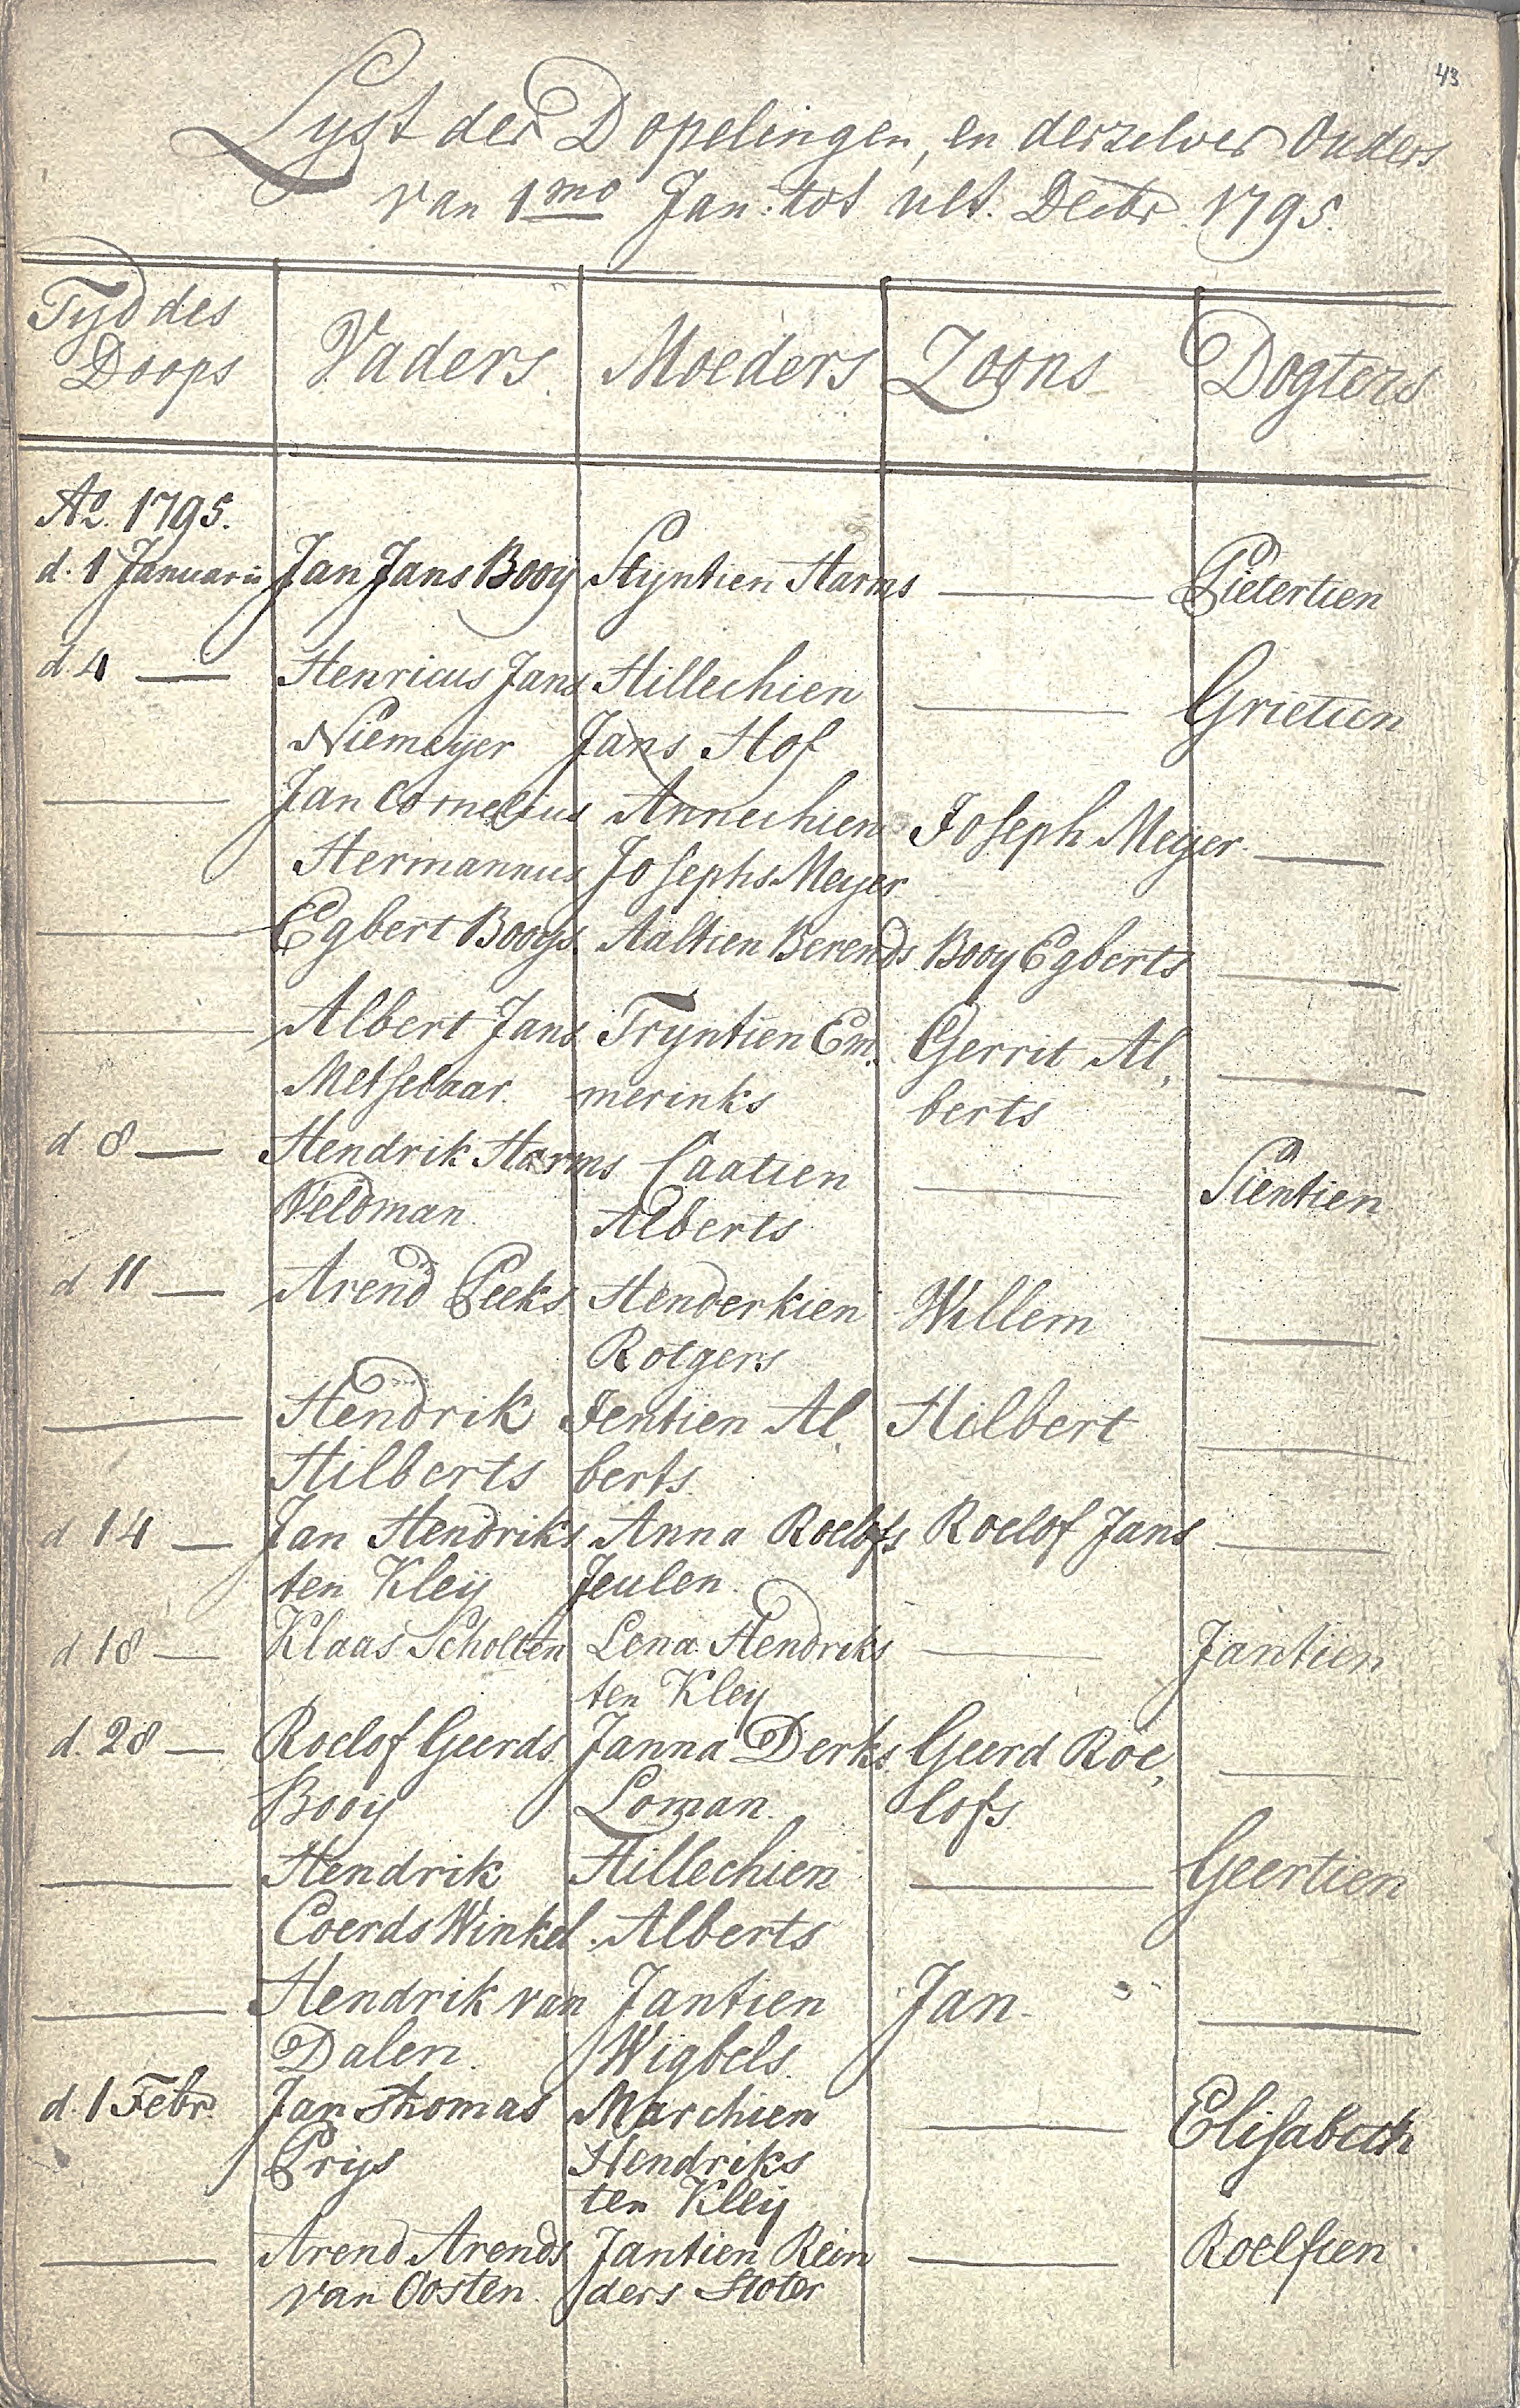 43
Lyst der Dopelingen, en derzelver Ouders
van 1mo Jan: tot ult. Decbr. 1795.
Tyd des
Doops
Vaders
Moeders
Zoons
Dogters
Ao. 1795.
d. 1 Januarii Jan Jans Booy Styntien Harms Pietertien
d 4 Henricus Jans Hillechien Grietien
Niemeyer Jans Hof
Jan Cornelius Annechien Joseph Meyer
Hermannus Josephs Meyer
Egbert Booys Aaltien Berends Booy Egberts
Albert Jans Tryntien Em, Gerrit Al,
Metselaar merinks berts
d. 8 Hendrik Harms Caatien Pientien
Veldman Alberts
d 11 Arend Peeks Henderkien Willem
Rotgers
Hendrik Jentien Al, Hilbert
Hilberts berts
d 14 Jan Hendriks Anna Roelofs Roelof Jans
ten Kleij Jeulen
d 18 Klaas Scholten Lena Hendriks Jantien
ten Kley
d. 28 Roelof Geerds Janna Derks Geerd Roe,
Booij Loman lofs
Hendrik Hillechien Geertien
Coerds Winkel Alberts
Hendrik van Jantien Jan
Dalen Wigbels
d. 1 Febr. Jan Thomas Marchien Elisabeth
Prijs Hendriks
ten Kleij
Arend Arends Jantien Rein Roelfien
van Oosten ders Stoter